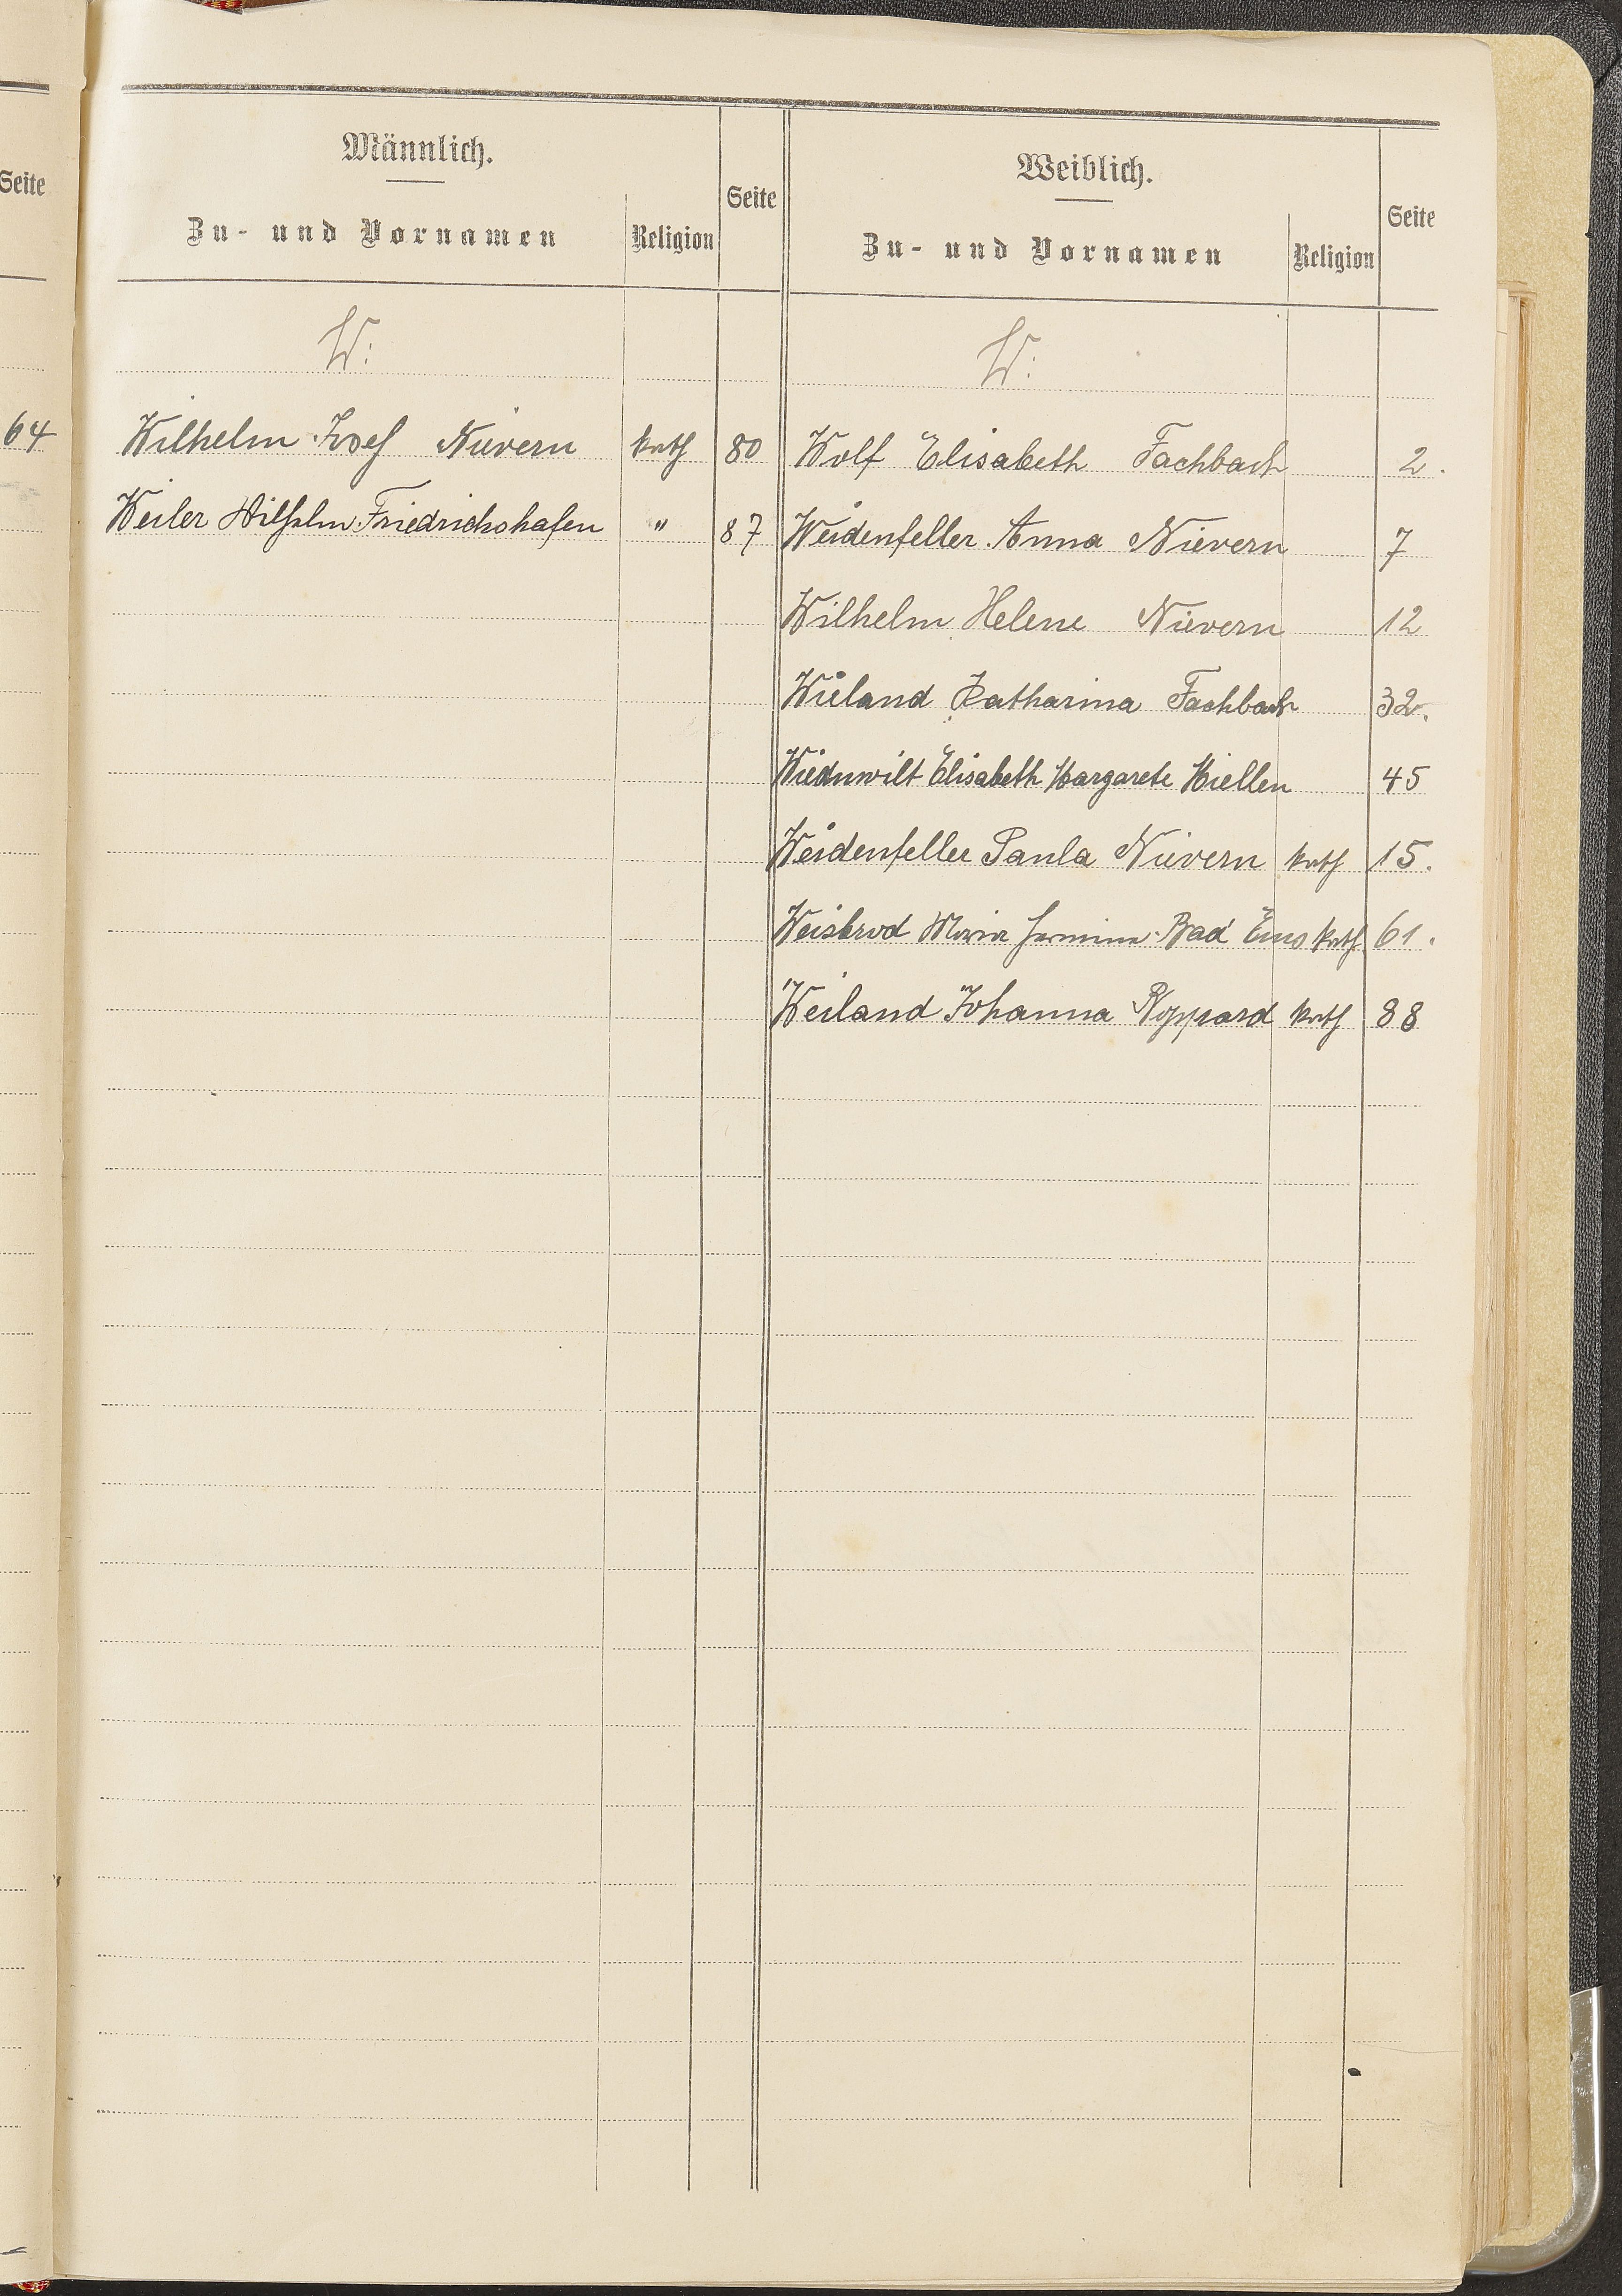 Seite
64
Männlich.
Zu- und Vornamen
Religion
Seite
W:
Wilhelm Josef Nievern kath 80
Weiler Wilhelm Friedrichshafen " 87
Weiblich.
Zu- und Vornamen
Religion
Seite
W:
Wolf Elisabeth Fachbach 2.
Weidenfeller Anna Nievern 7
Wilhelm Helene Nievern 12
Wieland Katharina Fachbach 32.
Elisabeth Margarete Miellen 45
Weidenfeller Paula Nievern kath 15.
Weisbrod Maria Hermine Bad Ems kath 61.
Weiland Johanna Boppard kath 88